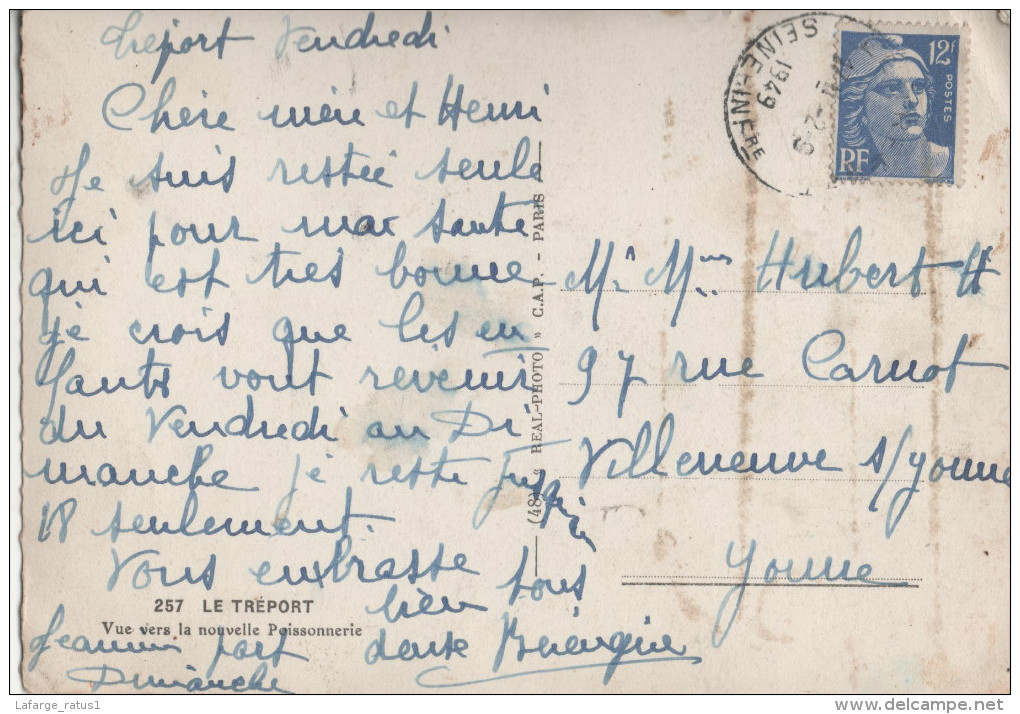 Treport Vendredi
Chère mère et Henri
Je suis restée seule
ici pour ma santé
qui est très bonne
je crois que les en
fants vont revenir
du Vendredi au Di
manche je reste jusqu'au
18 seulement.
Vous embrasse tous
bien
Jeannine part
Dimanche
257 LE TRÉPORT
Vue vers la nouvelle Poissonnerie
(48) « REAL-PHOTO » C.A.P. - PARIS
SEINE-INFRE
1949
12F
POSTES
RF
Mr Mme Hubert H
97 rue Carnot
Villeneuve s/yonne
Yonne
Lafarge_ratus1
delcampe.net